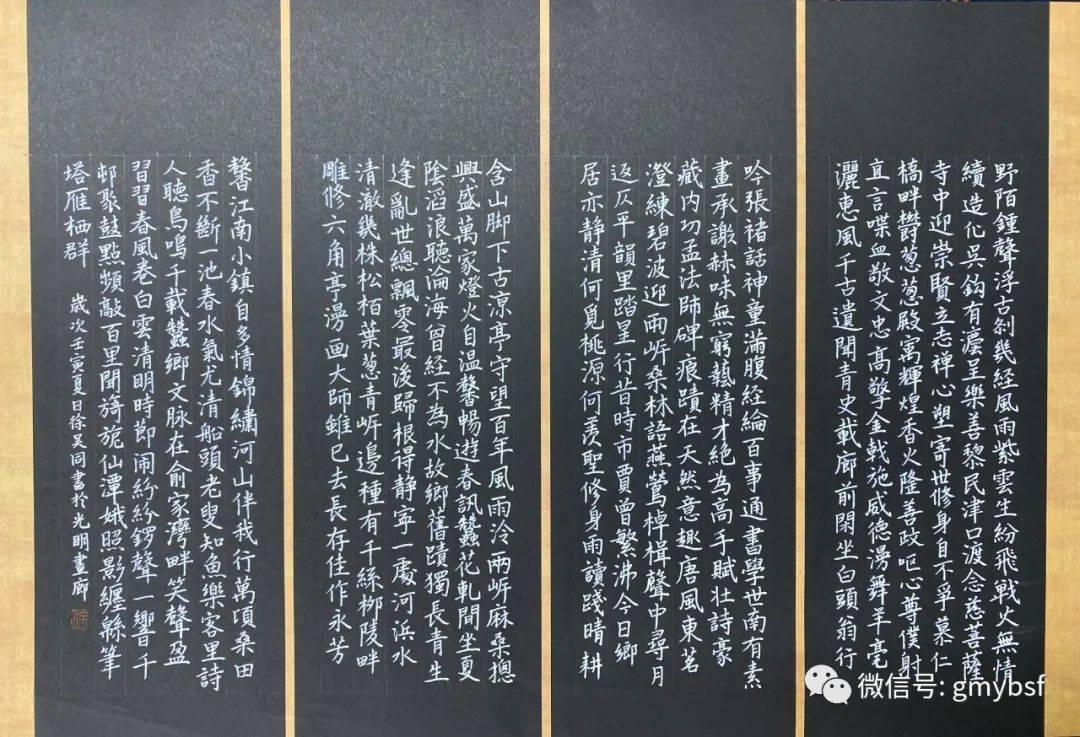 野陌鍾聲浮古刹幾經風雨紫雲生紛飛戰火無情
續造化吳鈎有靈呈樂善黎民津口渡念慈菩薩
寺中迎崇賢立志禅心塑寄世修身自不孚慕仁
橋畔欝葱葱殿寓輝煌香火隆善政呕心尊僕射
直言喋血敬文忠高擎金戟施威德漫舞羊毫
灑惠風千古遺聞青史載廊前閑坐白頭翁行
吟張禇話神童滿腹经綸百事通書學世南有素
畫承譤赫味無窮藝精才絶為高手賦壮詩豪
藏内功孟法師碑痕蹟在天然意趣唐風東茗
澄練碧波迎兩岍桑林語燕鶯棹楫聲中尋月
返仄平韻里踏呈行昔時市賈曾繁沸今日鄉
居亦静清何覓桃源何羡聖修身雨讀踐晴耕
含山脚下古涼亭守望百年風雨泠兩岍麻桑摠
興盛萬家燈火自温馨暢遊春訊蠶花軋間坐夏
陰滔浪聽淪海曾经不為水故鄉舊蹟獨長青生
逢亂世總飄零最後歸根得静寧一處河浜水
清澈幾株松柏葉葱青岍邊種有千絲栁陵畔
雕修六角亭漫画大師雖已去長存佳作永芳
馨江南小鎮自多情錦繡河山伴我行萬頃桑田
香不斷一池春水氣尤清船頭老叟知魚樂客里詩
人聽鳥鳴千載蠶鄉文脉在俞家灣畔笑聲盈
習習春風卷白雲清明時節闹紛紛鑼聲一響千
邨聚鼓點頻敲百里聞旖旎仙潭娥照影纏緜筆
塔雁栖群 歲次壬寅夏日徐吴同書於光明畫廊
微信号: gmybsf